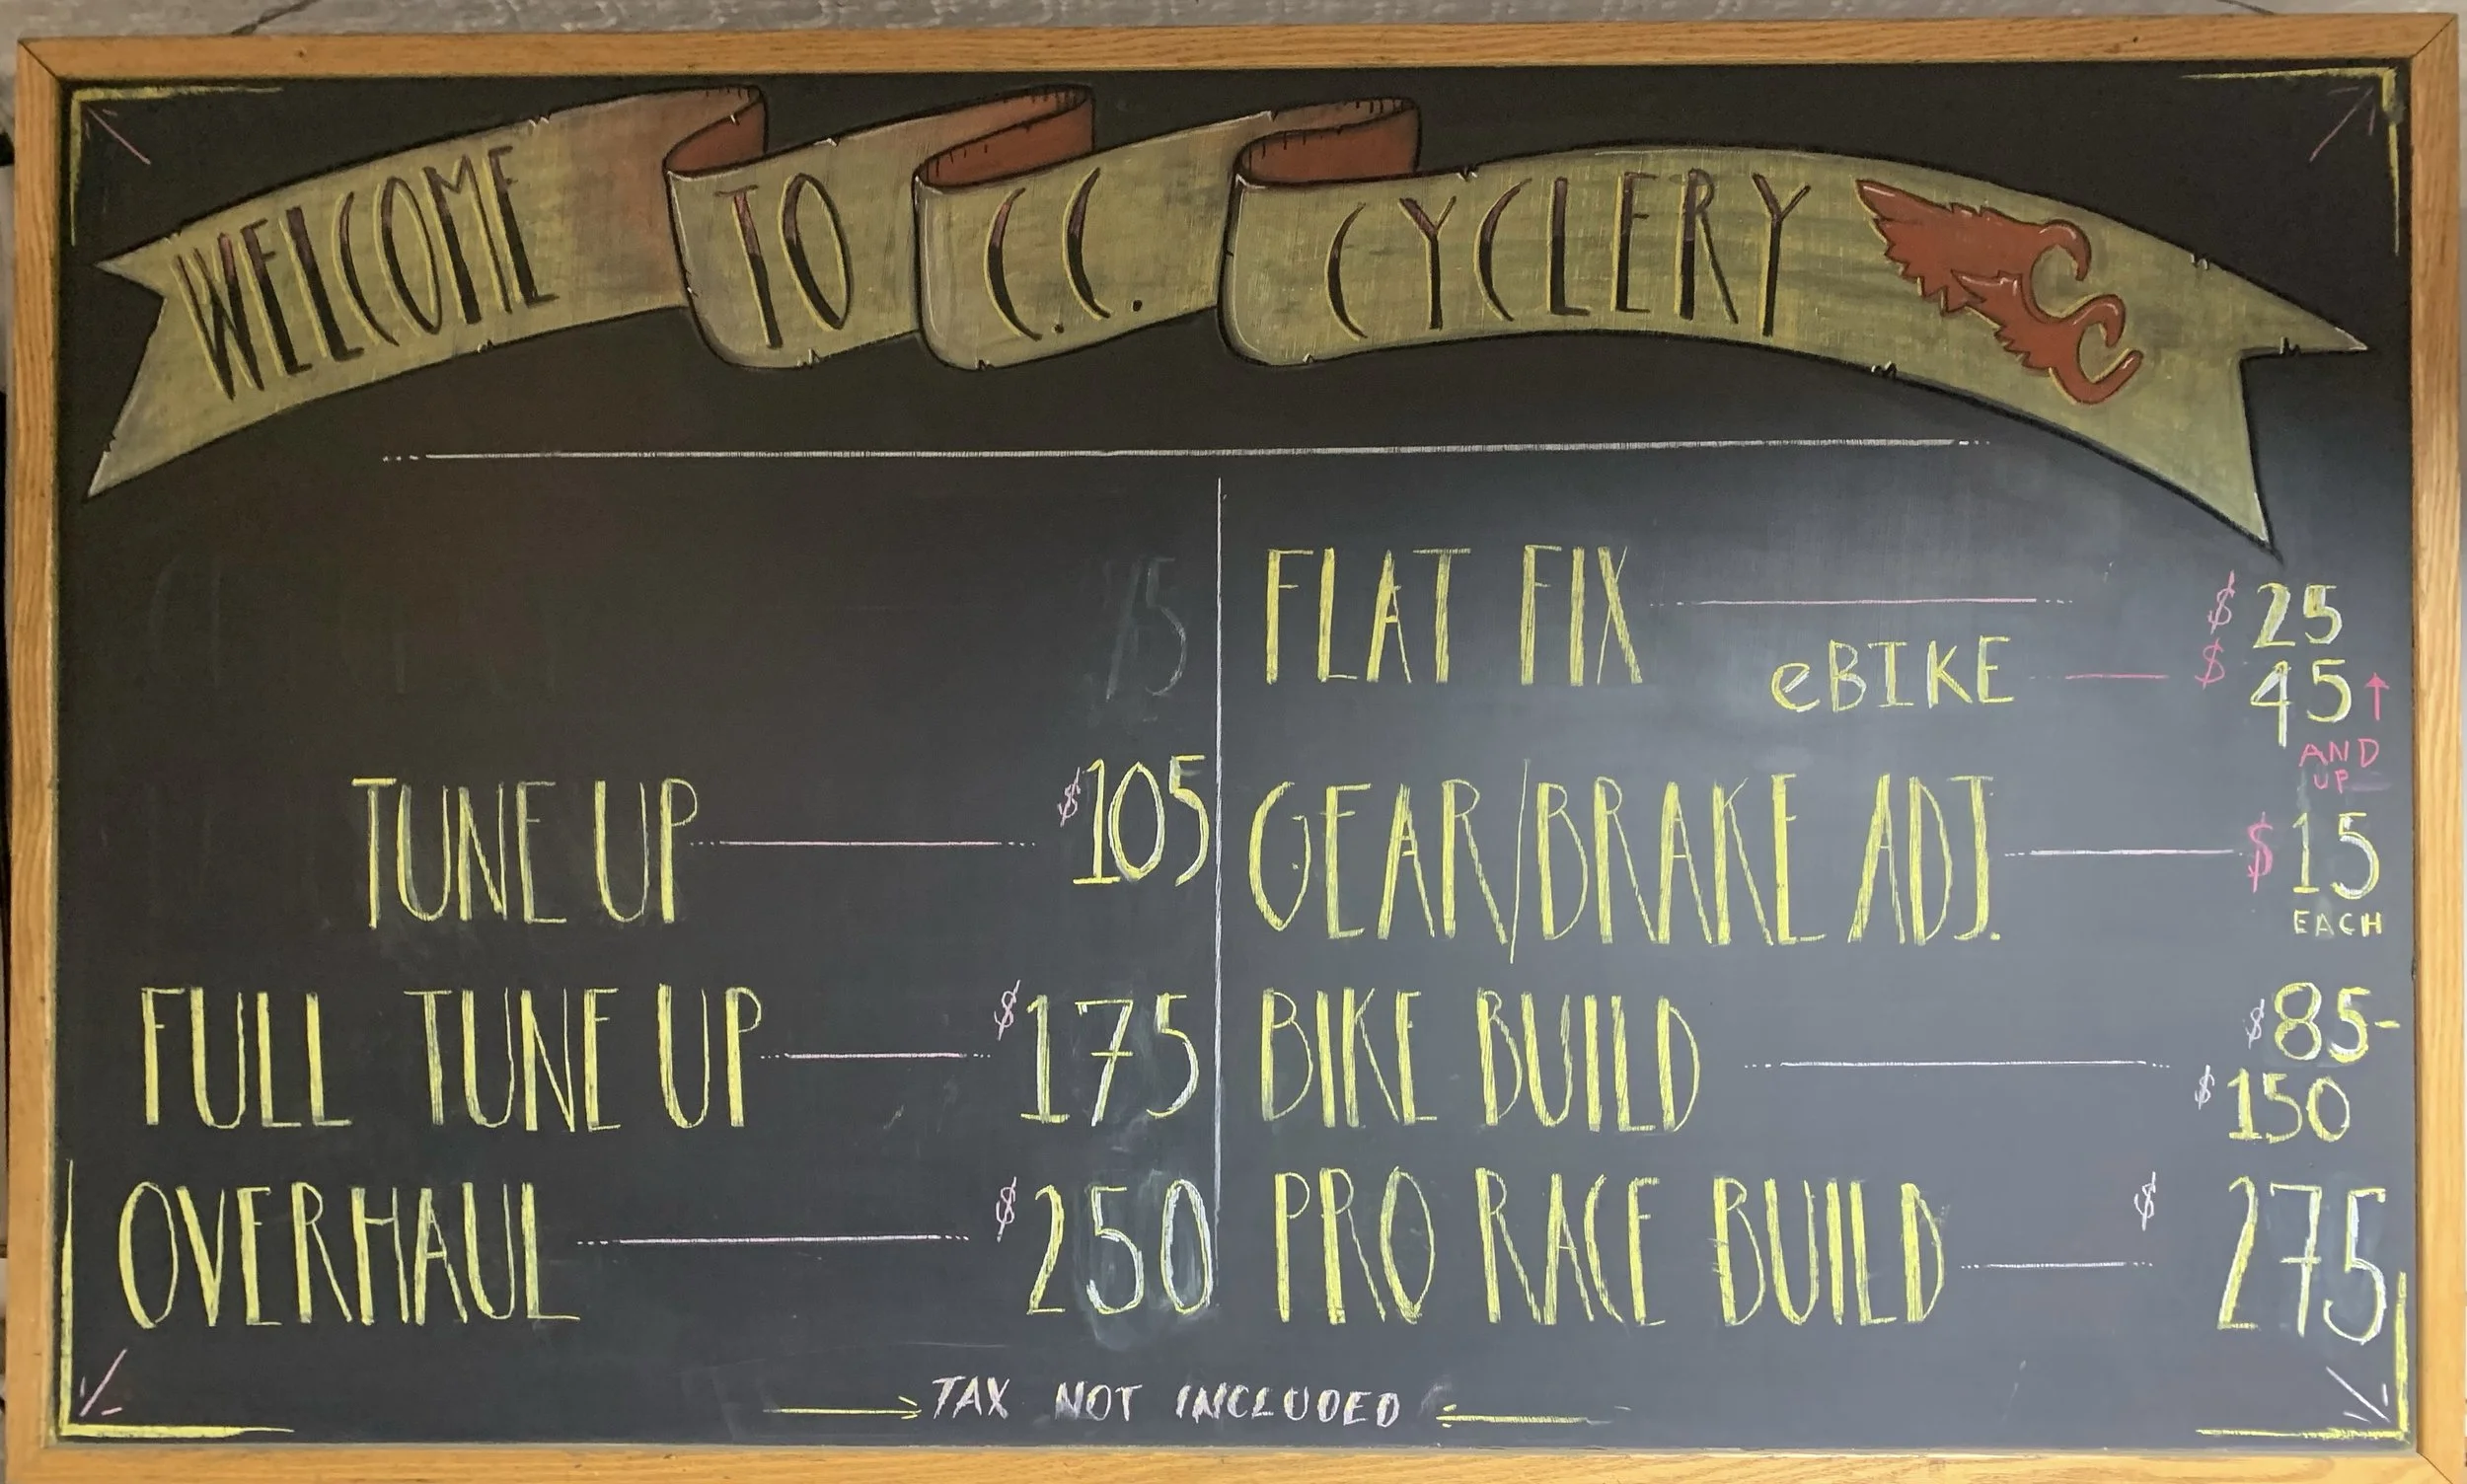 WELCOME TO C.C. CYCLERY
TUNE UP $105
FULL TUNE UP $175
OVERHAUL $250
FLAT FIX $25
eBIKE $45↑
AND
UP
GEAR/BRAKE ADJ. $15
EACH
BIKE BUILD $85-
$150
PRO RACE BUILD $275
TAX NOT INCLUDED